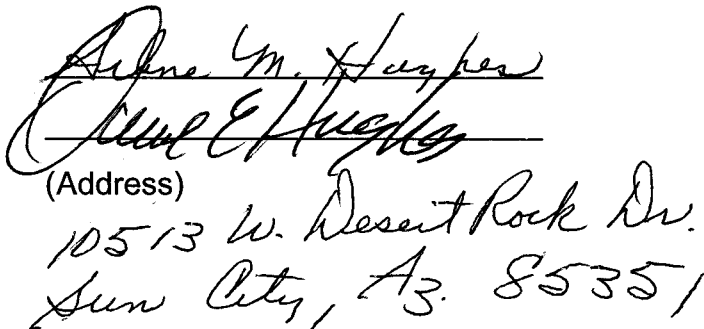 Arlene M. Hughes
E Hughes
(Address)
10513 W. Desert Rock Dr.
Sun City, Az. 85351